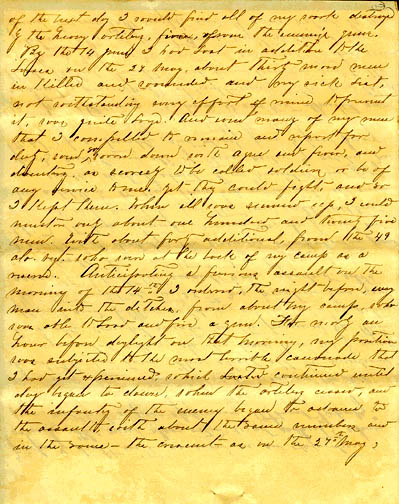 of the next day I would find all of my work destroyed
by the heavy artillery, from some of the enemy's guns.
By the 14 June I had lost in addition to the
losses on the 27 May, about thirty more men
in killed and wounded and my sick list,
not withstanding every effort of mine to prevent
it, was quite large. And even many of my men
that I compelled to remain and report for
duty, were so worn down with ague and fever, and
diarrhea, as scarcely to be called soldiers, or be of
any service to me, yet they could fight, and so
I kept them. When all was summed up, I could
muster only about one hundred and twenty five
men. With about forty additional, from the 49
Ala. regt. who were at the back of my camp as a
reserve. Anticipating a furious assault on the
morning of the 14th I ordered, the night before, every
man into the ditches, from about my camp, who
was able to load and fire a gun. For nearly an
hour before daylight on that morning, my position
was subjected to the most terrible cannonade that
I had yet experienced, which continued until
day began to dawn, when the artillery ceased, and
the infantry of the enemy began to advance to
the assault with about the same numbers and
in the same - the as on the 27th May,